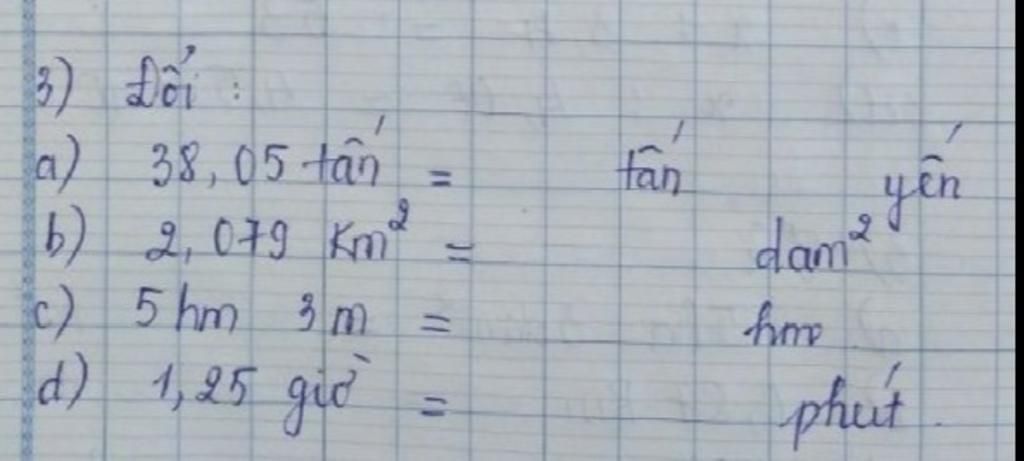 3) Đổi :
a) 38,05 tấn = tấn yến
b) 2,079 Km² = dam²
c) 5 hm 3 m = hm
d) 1,25 giờ = phút.